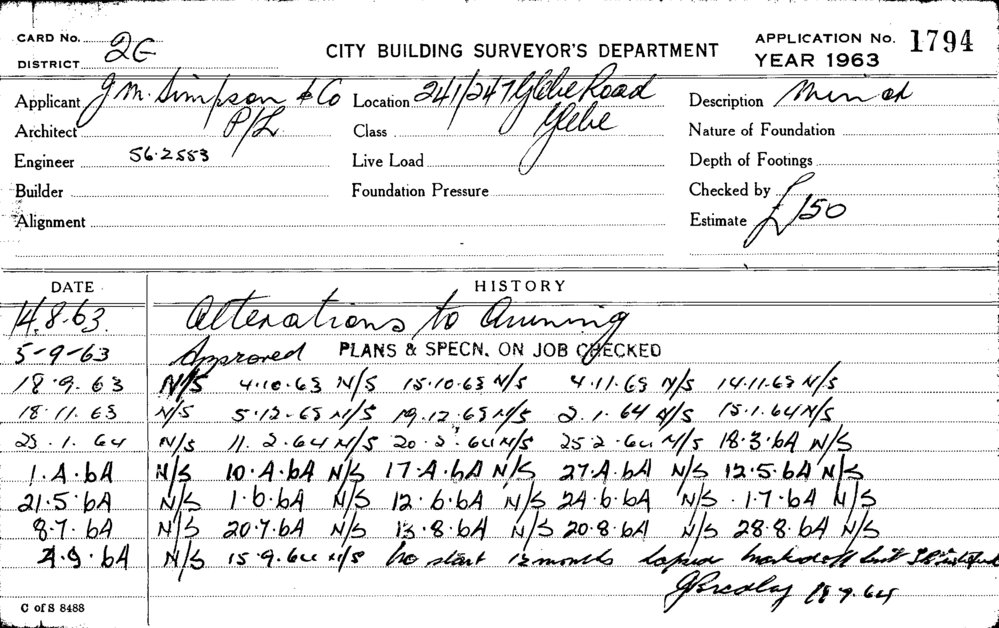 CARD No. 2G
DISTRICT
CITY BUILDING SURVEYOR'S DEPARTMENT
APPLICATION No. 1794
YEAR 1963
Applicant J. M. Simpson & Co P/L
Location 241/247 Glebe Road Glebe
Description
Architect
Class
Nature of Foundation
Engineer 56.2553
Live Load
Depth of Footings
Builder
Foundation Pressure
Checked by
Alignment
Estimate £150
DATE HISTORY
14.8.63. Alterations to Awning
5-9-63 Approved PLANS & SPECN. ON JOB CHECKED
18.9.63 N/S 4.10.63 N/S 15.10.63 N/S 4.11.63 N/S 14.11.63 N/S
18.11.63 N/S 5.12.63 N/S 19.12.63 N/S 2.1.64 N/S 15.1.64 N/S
25.1.64 N/S 11.2.64 N/S 20.2.64 N/S 25.2.64 N/S 18.3.64 N/S
1.4.64 N/S 10.4.64 N/S 17.4.64 N/S 27.4.64 N/S 12.5.64 N/S
21.5.64 N/S 1.6.64 N/S 12.6.64 N/S 24.6.64 N/S 1.7.64 N/S
8.7.64 N/S 20.7.64 N/S 13.8.64 N/S 20.8.64 N/S 28.8.64 N/S
4.9.64 N/S 15.9.64 N/S No start 12 months lapsed
9.64
C of S 8488